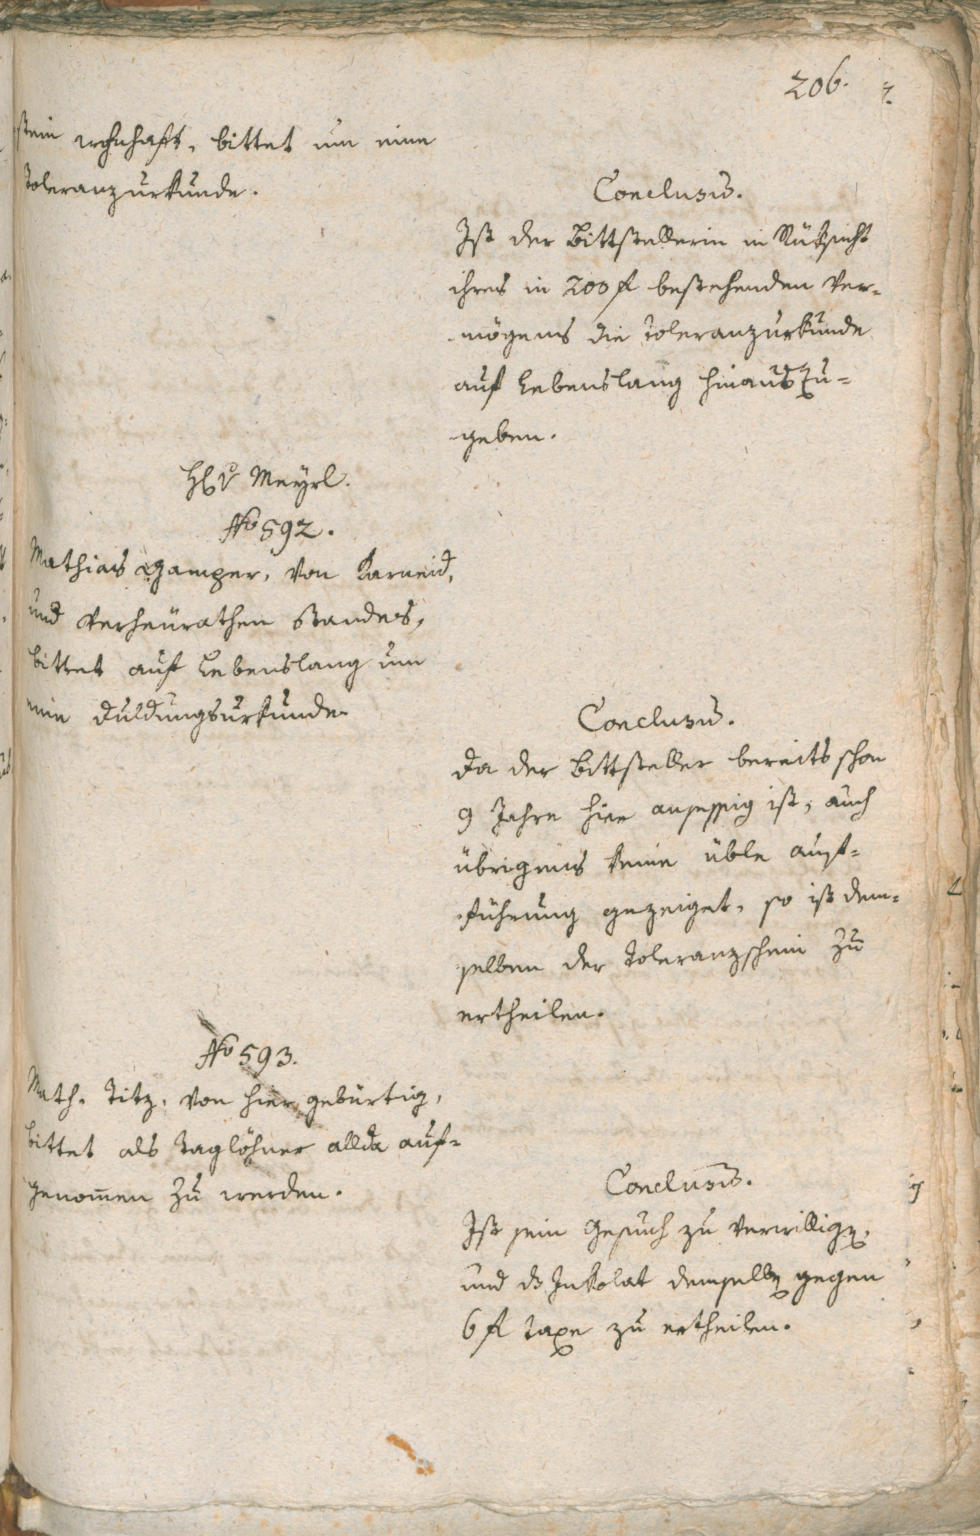 206.
stein wohnhaft, bittet um eine
Toleranzurkunde.
Conclusũ.
Ist der Bittstellerin in Rüksicht
ihres in 200 f bestehenden Ver-
mögens die Toleranzurkunde
auf Lebenslang hinauszu-
geben.
H. v Meyrl.
No 592.
Mathias Gamper, von Karneid,
und verheürathen Standes,
bittet auf Lebenslang um
eine Duldungsurkunde
Conclusũ.
Da der Bittsteller bereits schon
9 Jahre hier ansessig ist, auch
übrigens keine üble auf-
führung gezeiget, so ist dem-
selben der Toleranzschein zu
ertheilen.
No 593.
Math. Titz, von hier gebürtig,
bittet als Taglöhner allda auf-
genom̄en zu werden.
Conclusũ.
Ist sein Gesuch zu verwillig,
und ds Inkolat demselb gegen
6 f Taxe zu ertheilen.